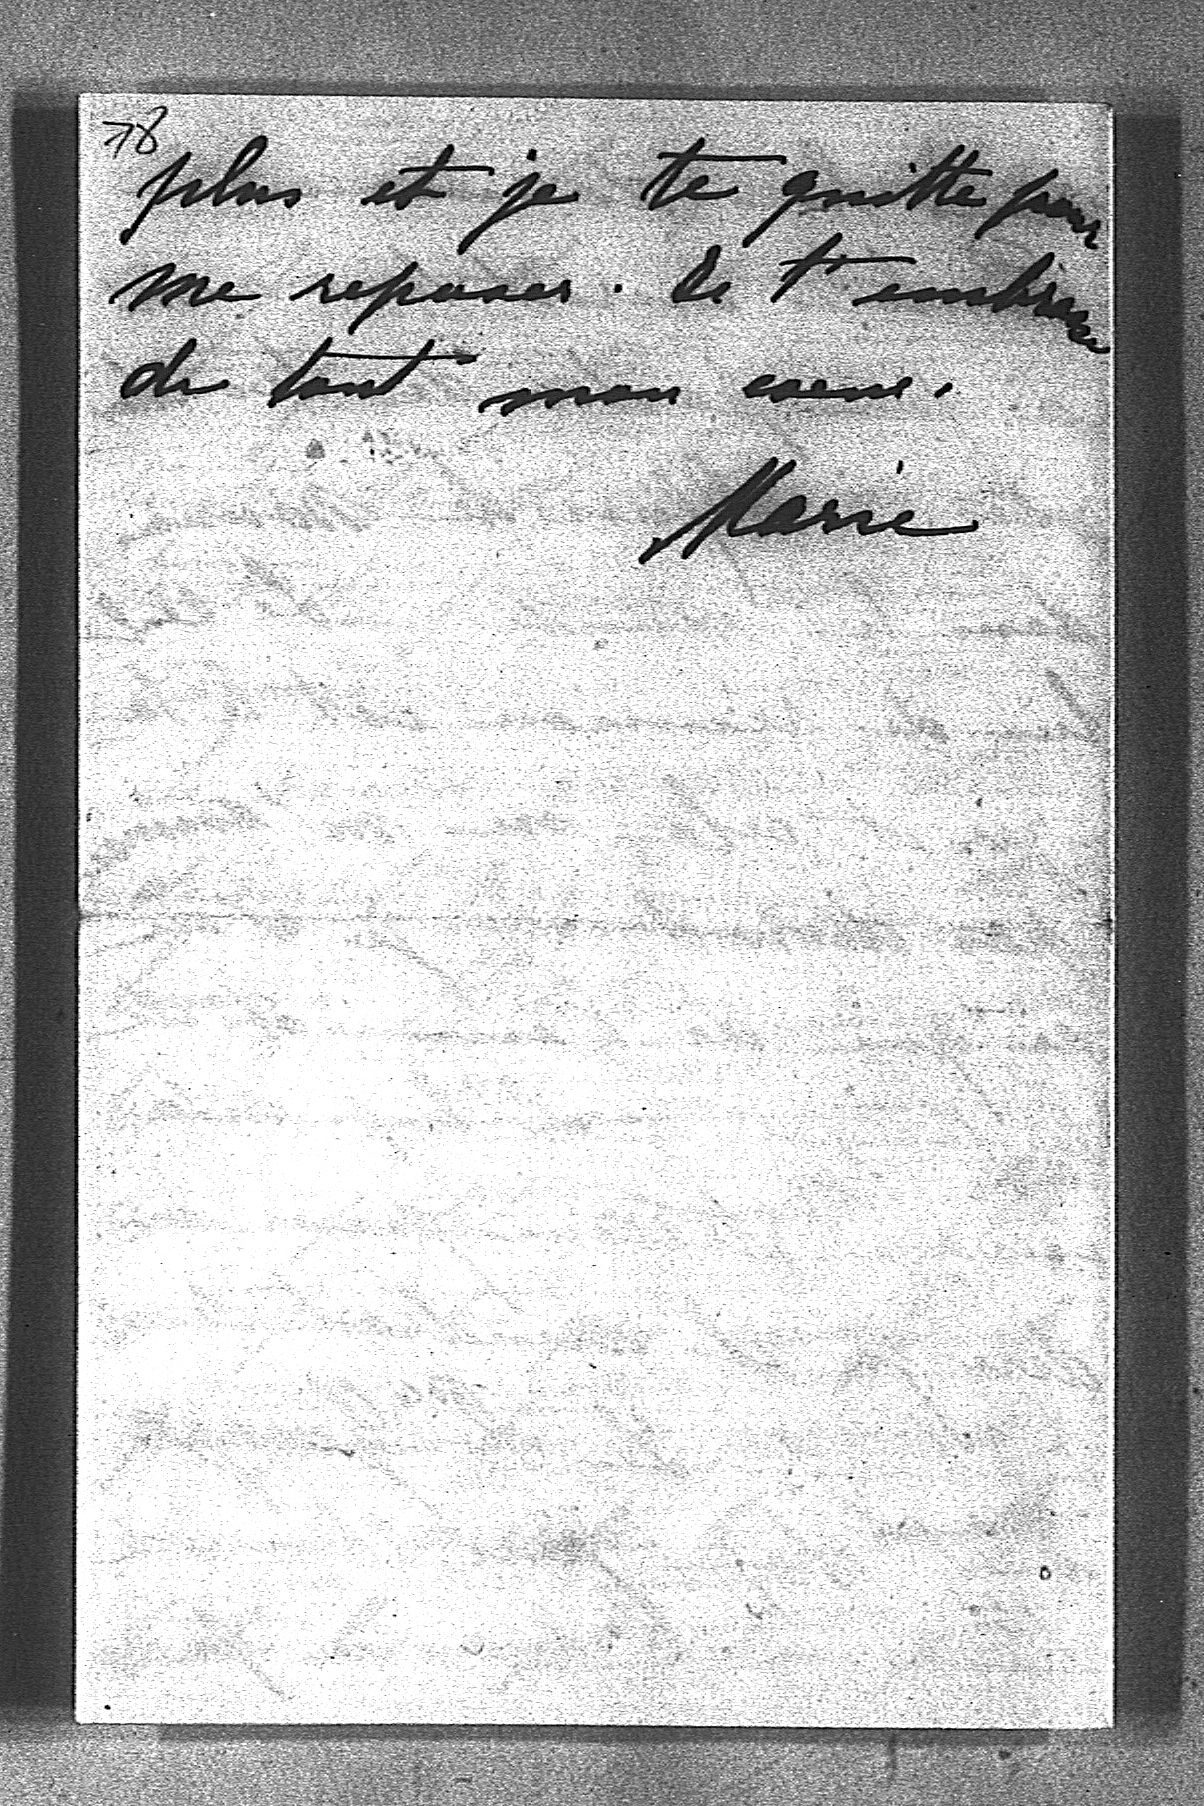 78
plus et je te quitte pour
me reposer. Je t'embrasse
de tout mon coeur.
Marie